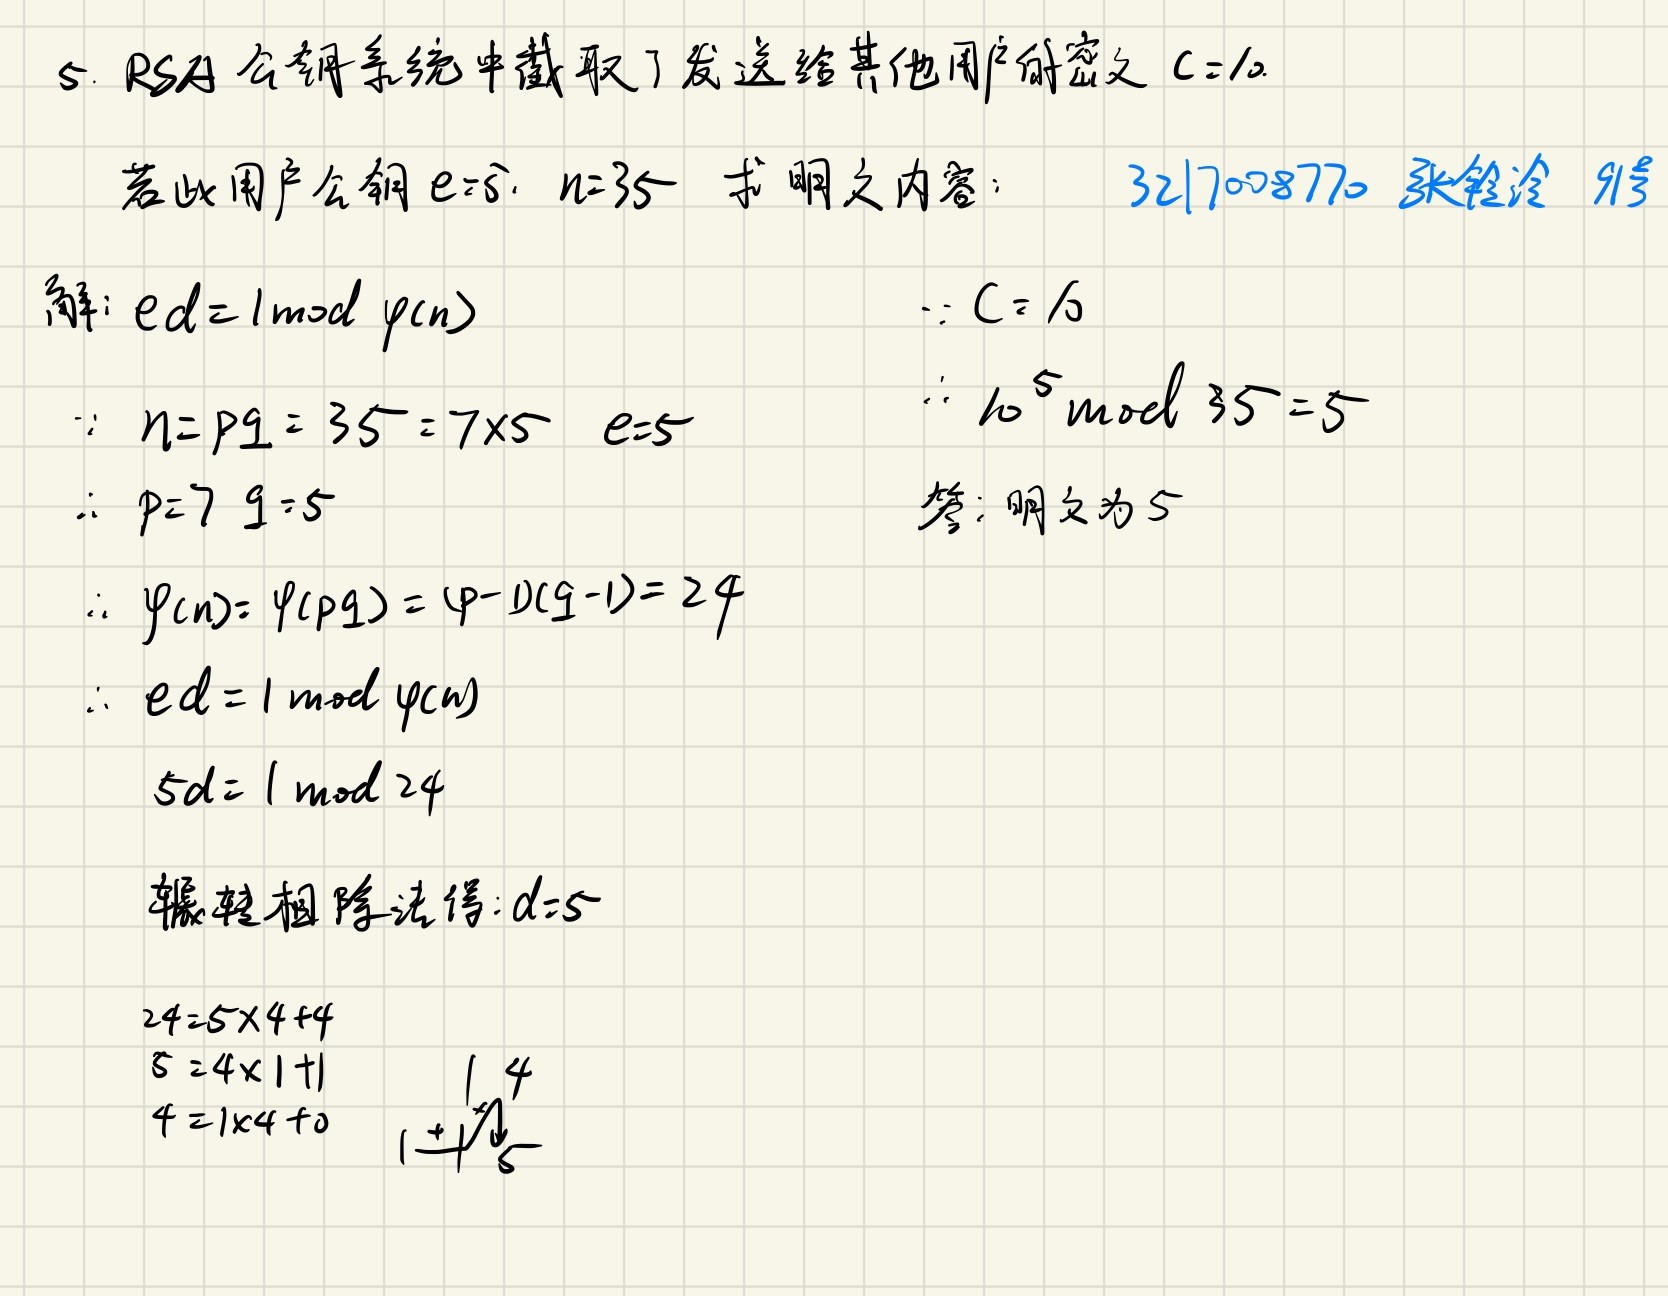 5. RSA 公钥系统中截取了发送给其他用户的密文 C=10.
若此用户公钥 e=5. n=35 求明文内容: 3217008770 张铨泠 91号
解: ed=1 mod φ(n)
∵ n=pq=35=7×5 e=5
∴ p=7 q=5
∴ φ(n)=φ(pq)=(p-1)(q-1)=24
∴ ed=1 mod φ(n)
5d=1 mod 24
辗转相除法得: d=5
24=5×4+4
5=4×1+1
4=1×4+0
1 4
1 + 1 × 5
∵ C=10
∴ 10⁵ mod 35=5
答: 明文为5